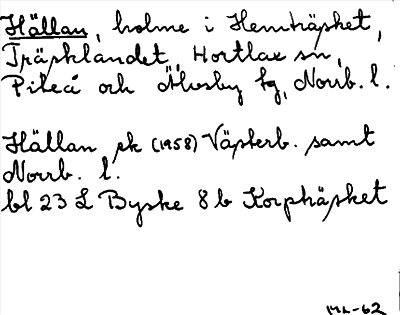 Hällan, holme i Hemträsket,
Träsklandet, Hortlax sn,
Piteå och Älvsby tg, Norrb. l.
Hällan sk (1958) Västerb. samt
Norrb. l.
bl 23 L Byske 8 b Korsträsket
ML-62